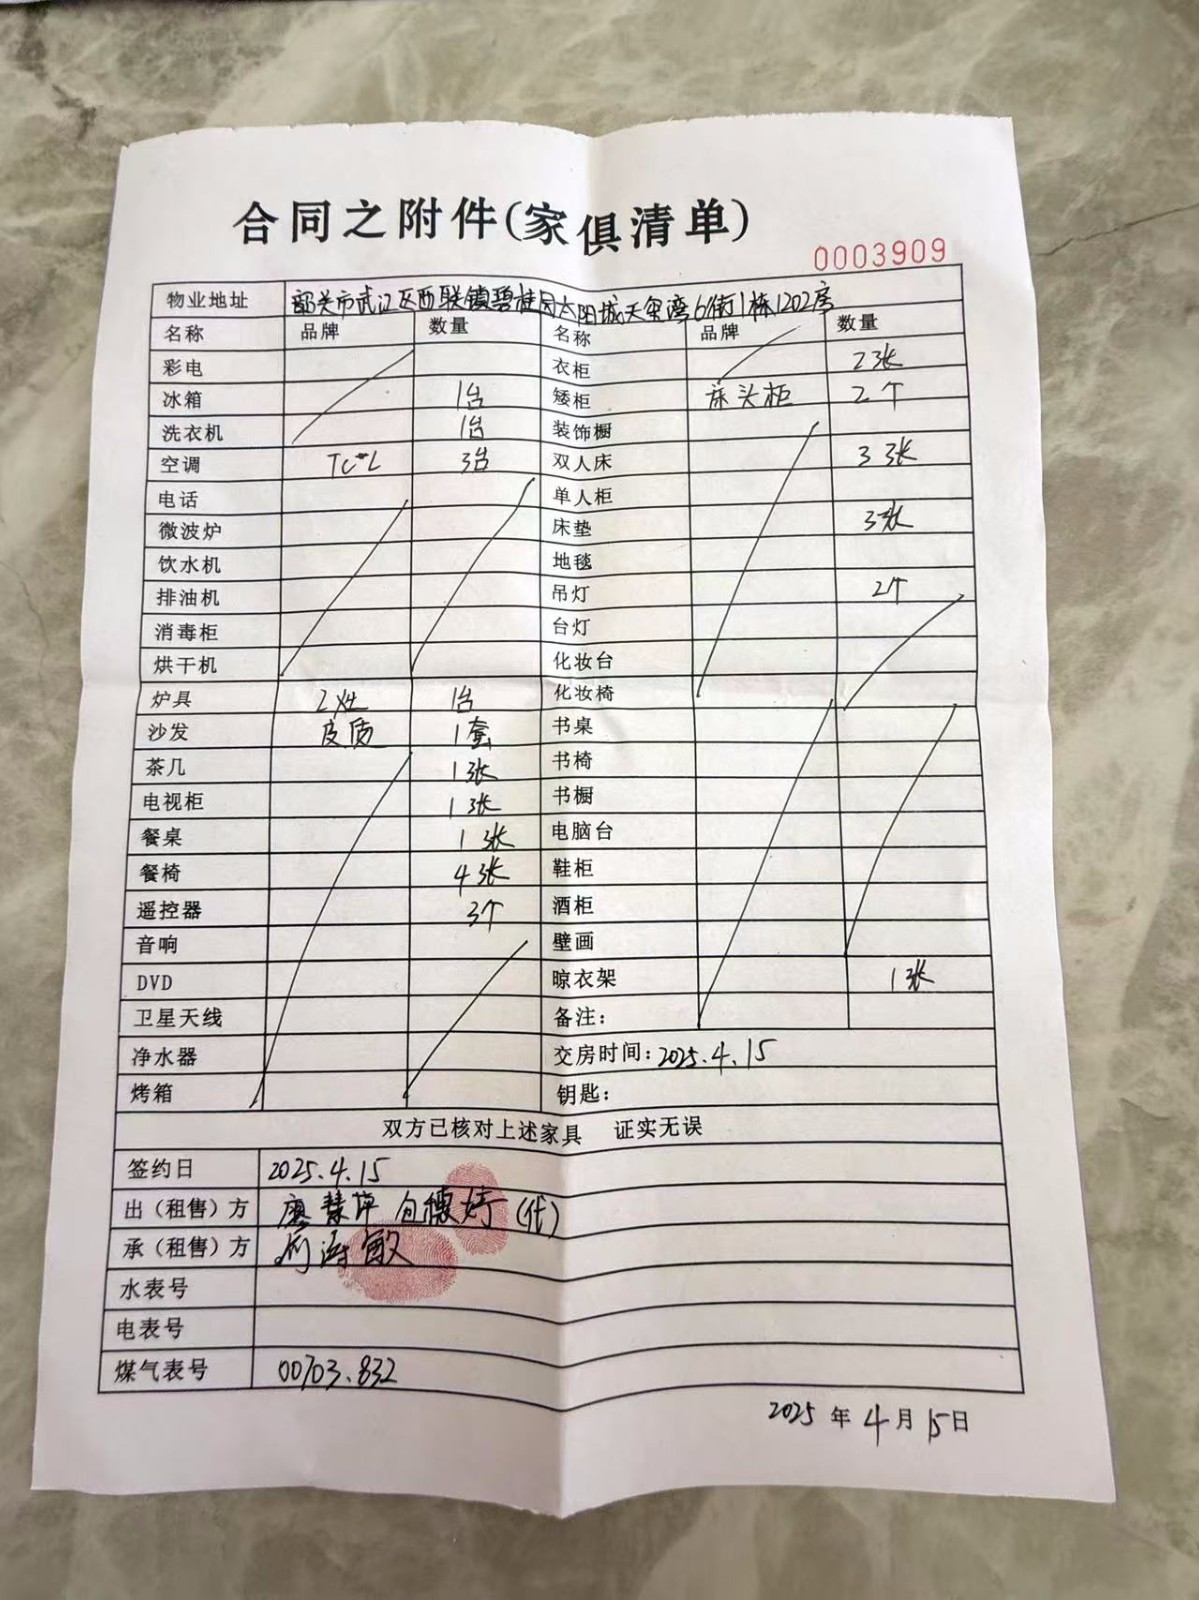 合同之附件(家俱清单)
0003909
物业地址 韶关市武江区西联镇碧桂园太阳城天玺湾6街1栋1202房
名称 品牌 数量 名称 品牌 数量
彩电 衣柜 2张
冰箱 1台 矮柜 床头柜 2个
洗衣机 1台 装饰橱
空调 TCL 3台 双人床 3张
电话 单人柜
微波炉 床垫 3张
饮水机 地毯
排油机 吊灯 2个
消毒柜 台灯
烘干机 化妆台
炉具 1台 化妆椅
沙发 皮质 1套 书桌
茶几 1张 书椅
电视柜 1张 书橱
餐桌 1张 电脑台
餐椅 4张 鞋柜
遥控器 3个 酒柜
音响 壁画
DVD 晾衣架 1张
卫星天线 备注:
净水器 交房时间:2025.4.15
烤箱 钥匙:
双方已核对上述家具 证实无误
签约日 2025.4.15
出(租售)方 廖慧萍 (代)
承(租售)方
水表号
电表号
煤气表号 00703.832
2025年4月15日